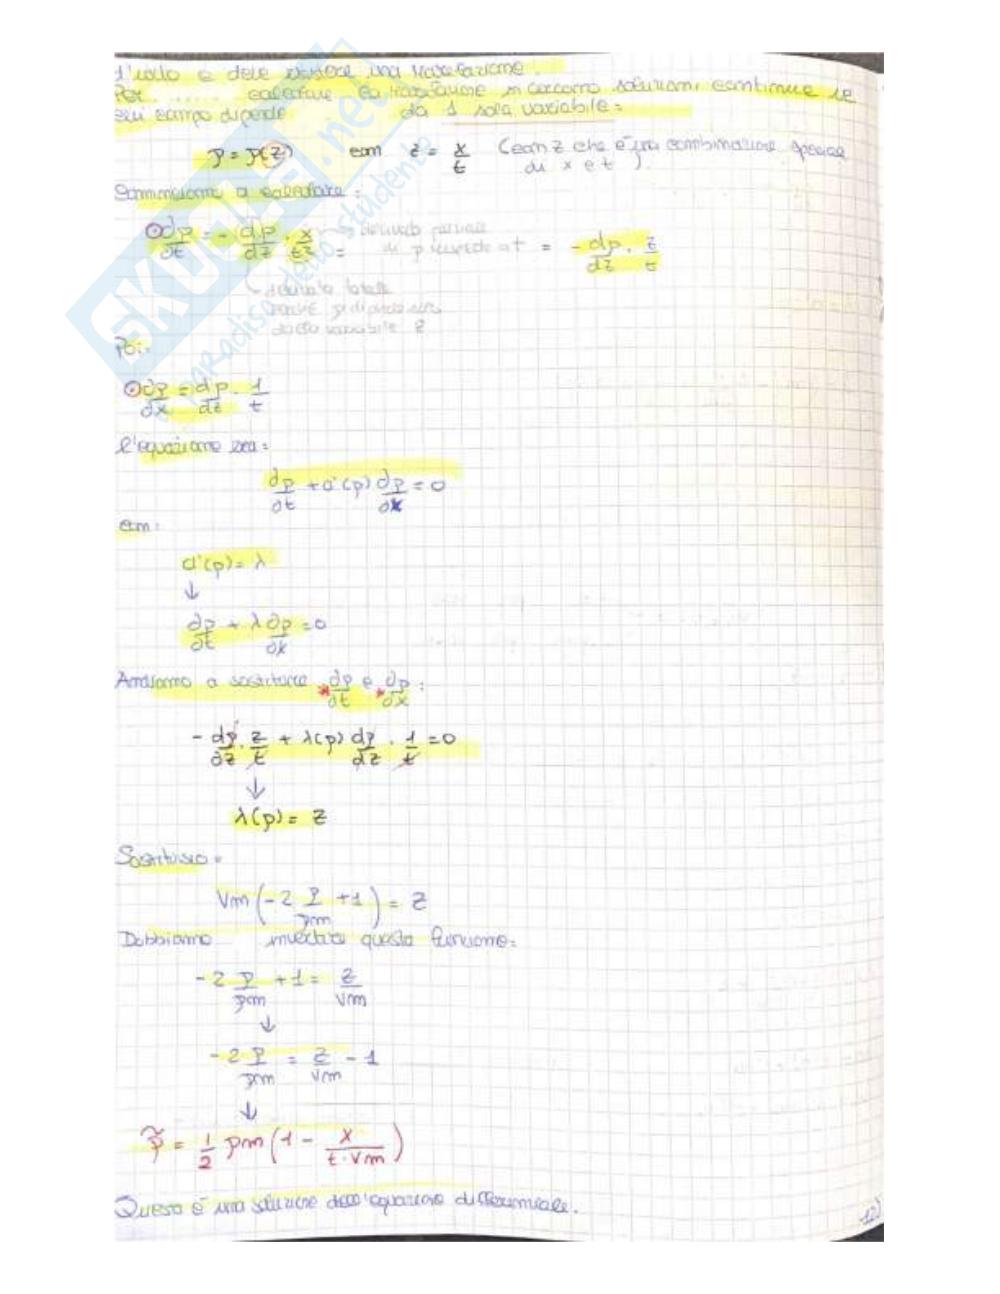 L'urto e deve essere una rarefazione.
Per calcolare la rarefazione si cercano soluzioni continue se
cui campo dipende da 1 sola variabile:
p = p(z) con z = x/t (con z che è una combinazione speciale
di x e t).
Cominciamo a calcolare:
∂p/∂t = - dp/dz · x/t² = derivata parziale di p rispetto a t = - dp/dz · z/t
derivata totale
dalla variabile z
Poi:
∂p/∂x = dp/dz · 1/t
L'equazione era:
∂p/∂t + a'(p) ∂p/∂x = 0
con:
a'(p) = λ
↓
∂p/∂t + λ ∂p/∂x = 0
Andiamo a sostituire *∂p/∂t e *∂p/∂x:
- dp/dz · z/t + λ(p) dp/dz · 1/t = 0
↓
λ(p) = z
Sostituisco:
Vm (-2 p/pm + 1) = z
Dobbiamo invertire questa funzione:
-2 p/pm + 1 = z/Vm
↓
-2 p/pm = z/Vm - 1
↓
p̃ = 1/2 pm (1 - x/(t·Vm))
Questa è una soluzione dell'equazione differenziale.
12)
SKUOLA.net
il paradiso dello studente